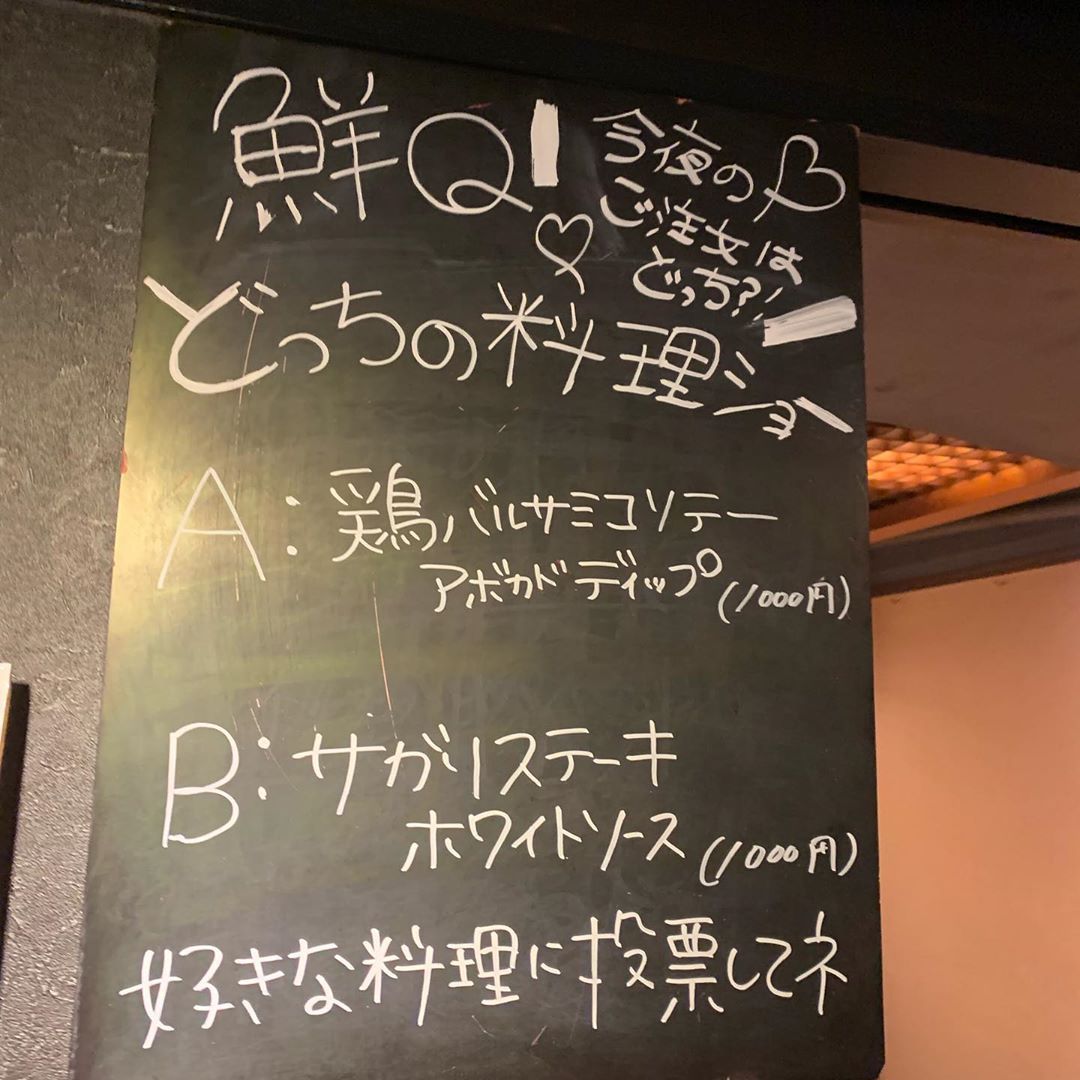 鮮Q
今夜の
ご注文は
どっち?!
どっちの料理ショー
A:鶏バルサミコソテー
アボカドディップ(1000円)
B:サガリステーキ
ホワイトソース(1000円)
好きな料理に投票してネ